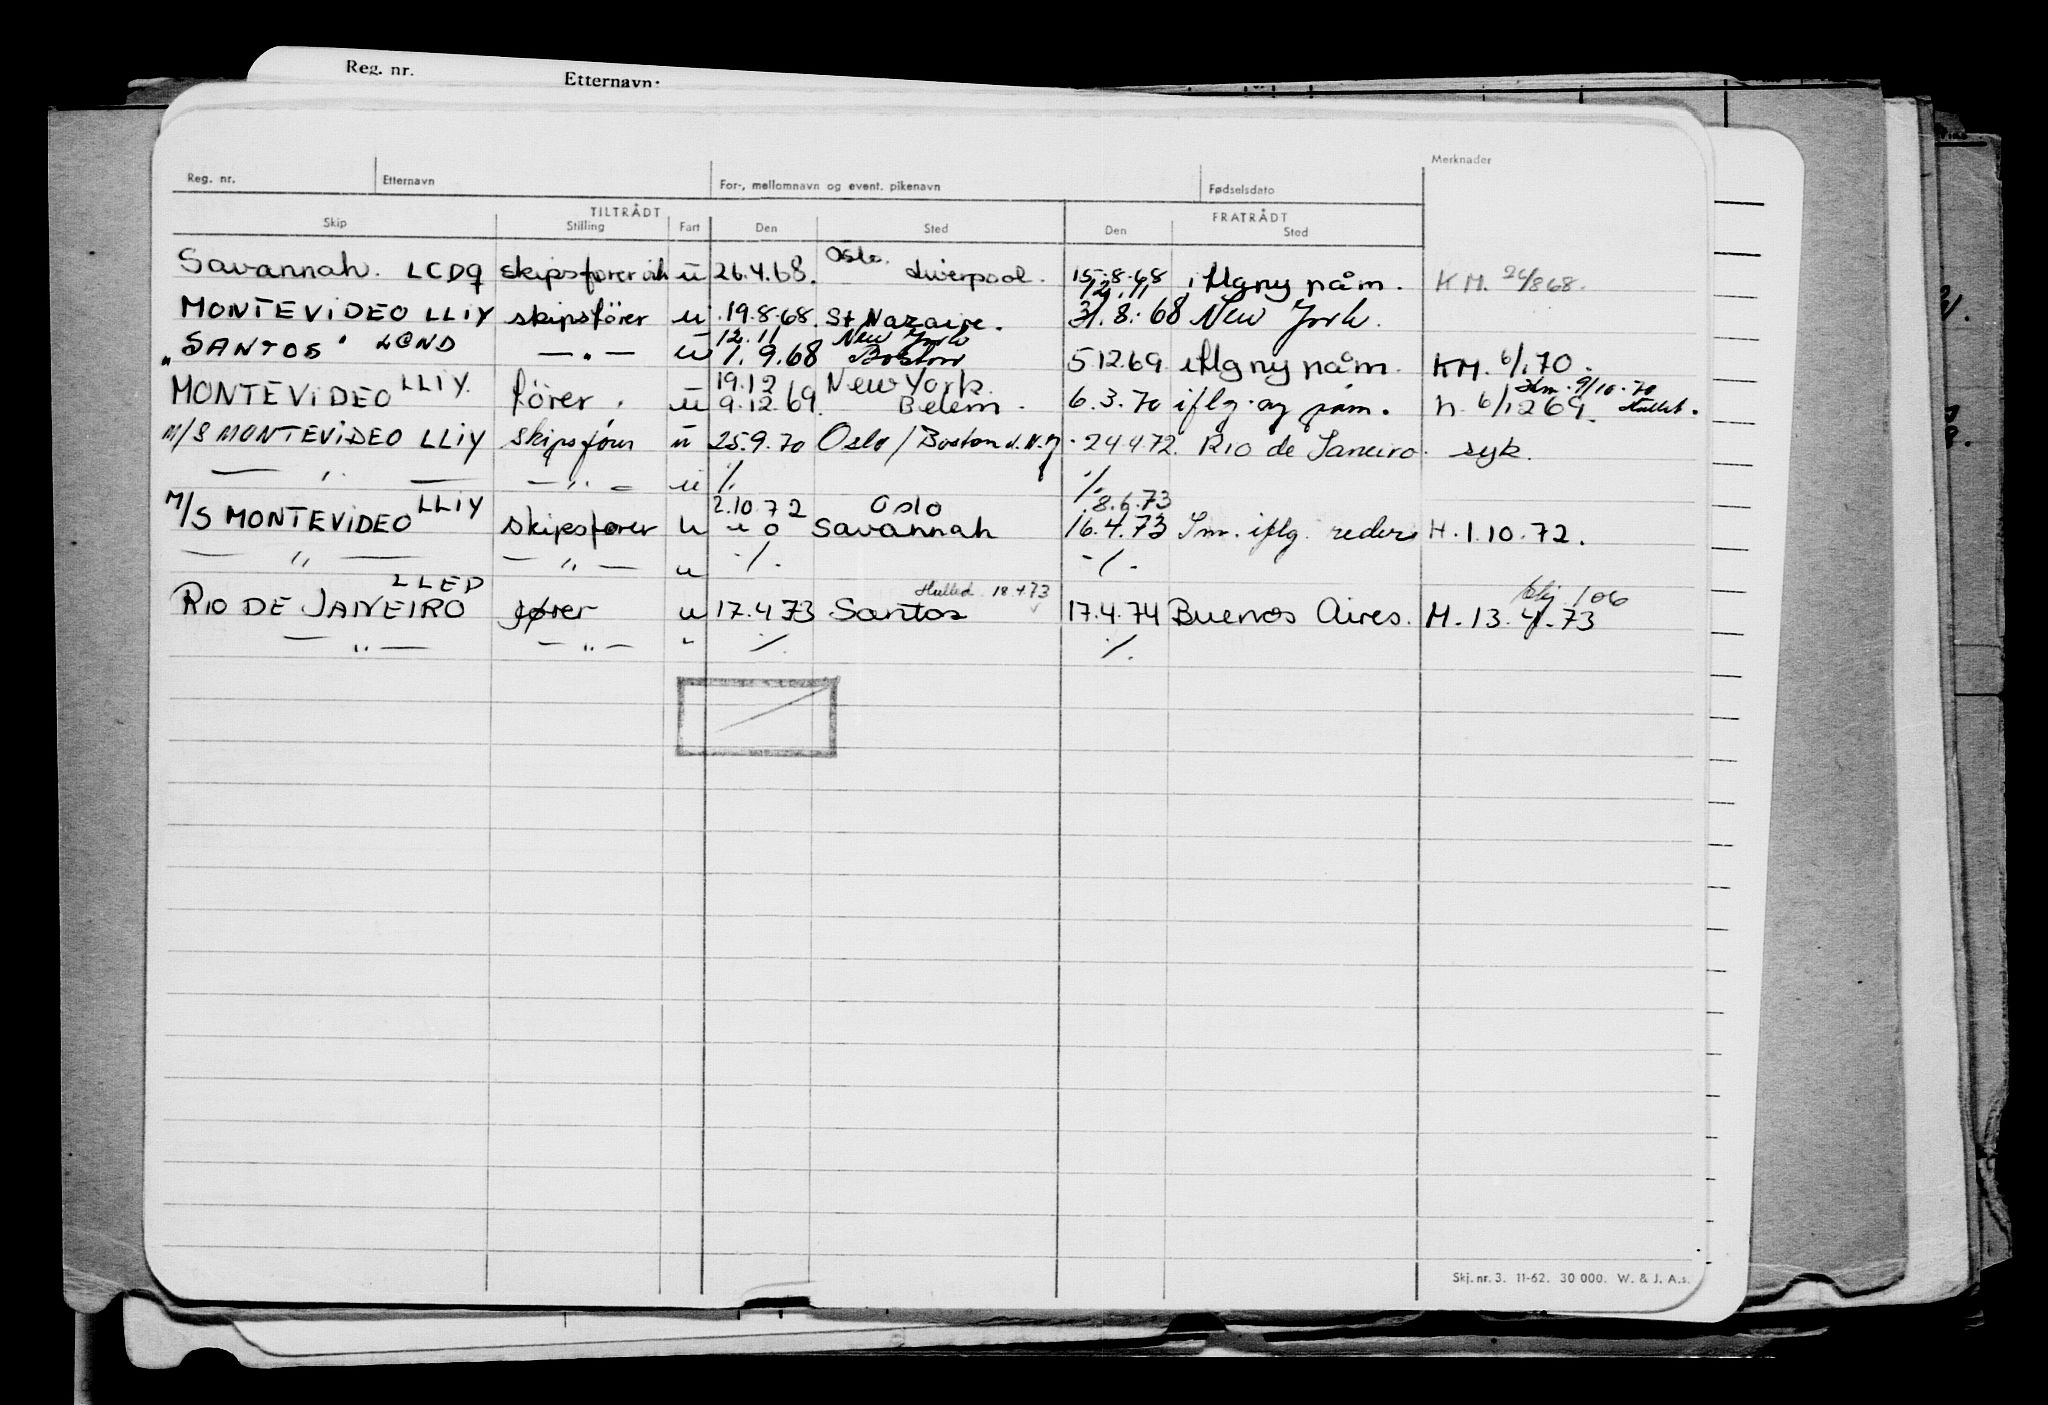 Reg. nr. Etternavn:
Merknader
Reg. nr. Etternavn For-, mellomnavn og event. pikenavn Fødselsdato
TILTRÅDT FRATRÅDT
Skip Stilling Fart Den Sted Den Sted
Oslo.
Savannah. LCDQ skipsfører u 26.4.68. Liverpool. 15.8.68 iflg ny påm. KM. 24/868.
12.11
MONTEVIDEO LLIY skipsfører u 19.8.68. St Nazaire. 31.8.68 New York.
12.11 New York
"SANTOS" LCND — " — u 1.9.68 Boston 5.12.69 iflg ny påm. KM. 6/1.70.
LLIY. 19.12 New York. 9/10.70
MONTEVIDEO fører. u 9.12.69. Belem. 6.3.70 iflg. ny påm. h. 6/1269.
M/S MONTEVIDEO LLIY skipsfører u 25.9.70 Oslo / Boston 24.4.72. Rio de Janeiro. syk.
— " — — " — u ./. ./.
LLIY 2.10.72 Oslo 8.6.73
M/S MONTEVIDEO skipsfører u Savannah 16.4.73 iflg. rederi H. 1.10.72.
— " — — " — u ./. ./.
LLED Hulled 18.4.73 106
RIO DE JANEIRO fører u 17.4.73 Santos 17.4.74 Buenos Aires. M. 13.4.73
— " — — " — " ./. ./.
Skj. nr. 3. 11-62. 30 000. W. & J. A.s.